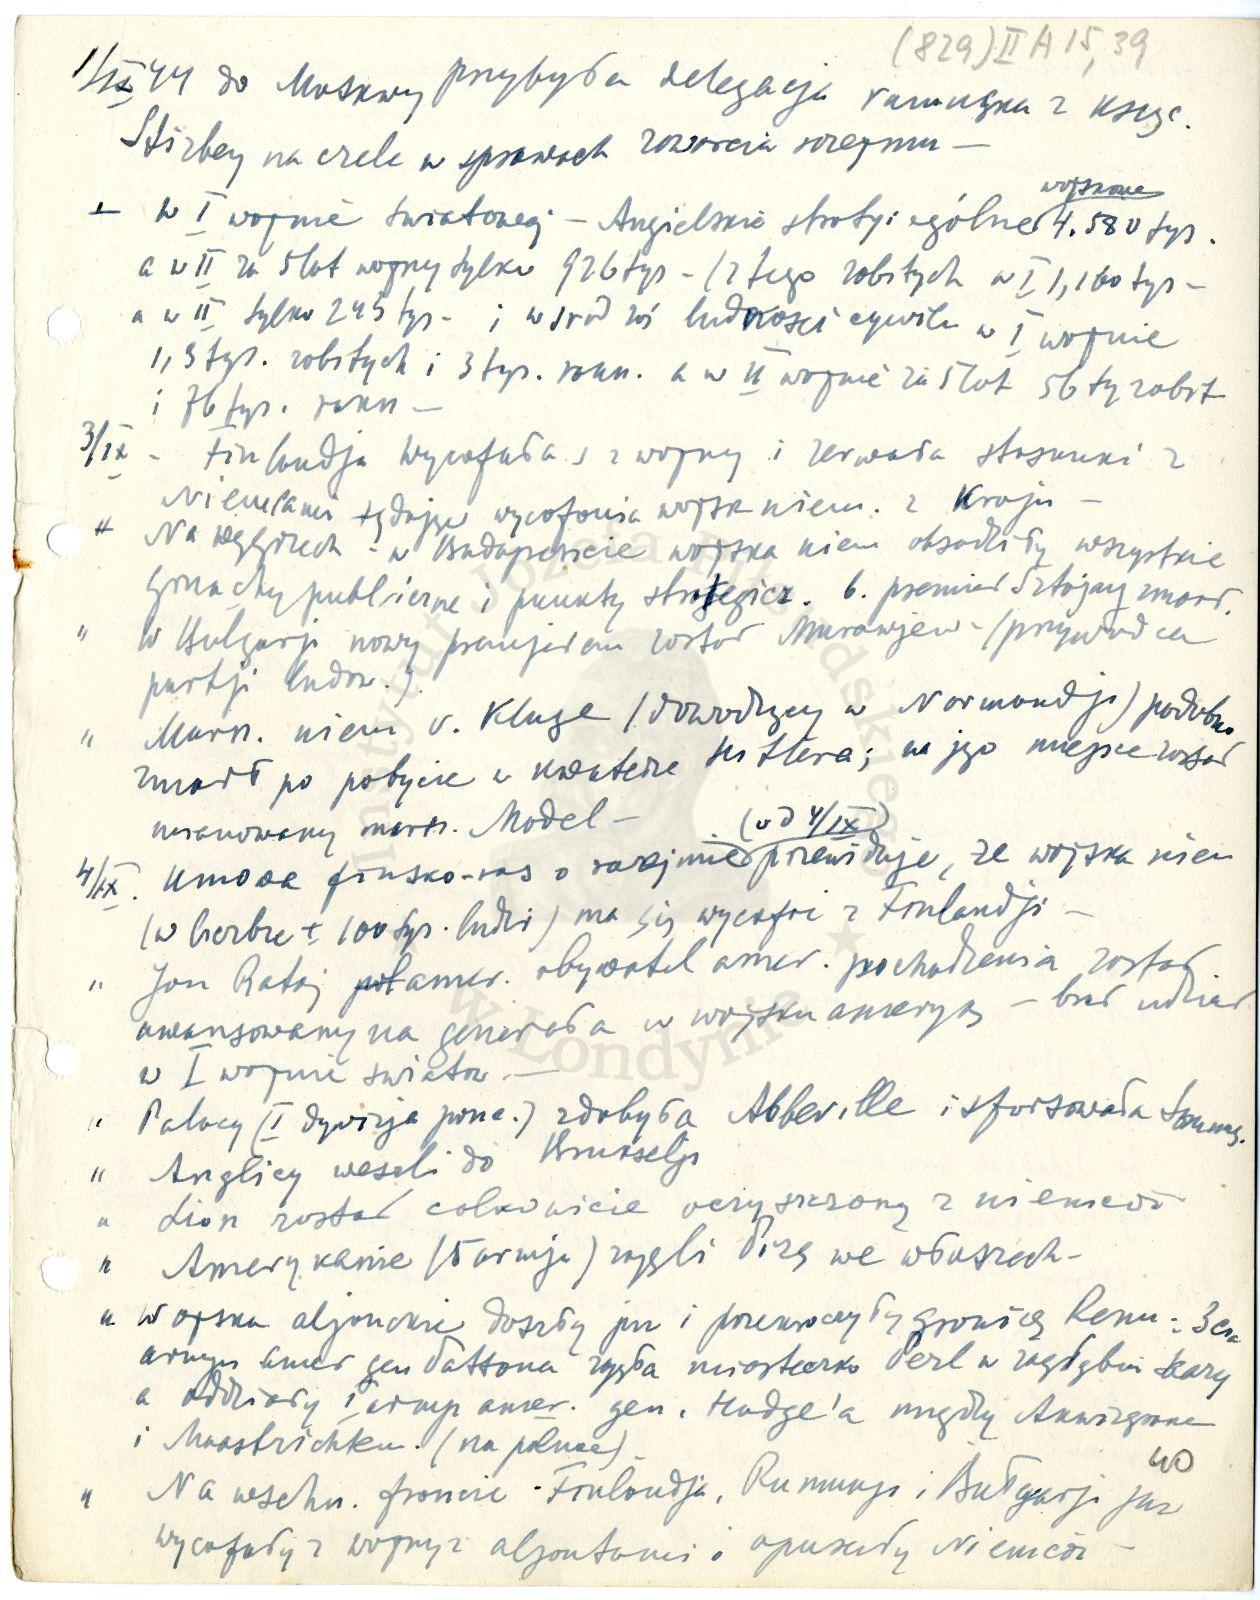 (829) II A 15, 39
1/IX 44 do Moskwy przybyła delegacja rumuńska z księc.
Stirbey na czele w sprawach zawarcia rozejmu —
— w I wojnie światowej — Angielskie straty ogólne wojskowe 4.580 tys.
a w II za 5 lat wojny tylko 926 tys — (z tego zabitych w I 1,160 tys —
a w II tylko 245 tys — i wśród zaś ludności cywiln w I wojnie
1,3 tys. zabitych i 3 tys. rann. a w II wojnie za 5 lat 56 ty zabit
i 76 tys. rann —
3/IX — Finlandja wycofała s z wojny i zerwała stosunki z
Niemcami żądając wycofania wojsk niem. z Kraju —
" Na węgrzech — w Budapeszcie wojska niem obsadziły wszystkie
gmachy publiczne i punkty strategicz. b. premier Sztójay
" W Bulgarji nowy premjerem został Murawjew — (przywódca
partji ludow.)
" Marsz. niem v. Kluge (dowodzący w Normandji) podobno
zmarł po pobycie w kwaterze Hitlera; na jego miejsce został
mianowany marsz. Model —
4/IX. Umowa finsko-ros o rozejmie (od 4/IX) przewiduje, że wojska niem
(w liczbie ± 100 tys. ludzi) ma się wycofać z Finlandji —
" Jan Rataj amer. obywatel amer. pochodzenia został
awansowany na generała w wojsku ameryk — brał udział
w I wojnie światow. —
" Polacy (I dywizja panc.) zdobyła Abbeville i sforsowała Sommę.
" Anglicy weszli do Brukselji
" Lion został całkowicie oczyszczony z niemców
" Amerykanie (5 armja) zajęli Pizę we włoszech —
" Wojska aljanckie doszły już i przekroczyły granicę Renu: 3cia
armja amer gen Pattona zajęła miasteczko Perl w zagłębiu Saary
a oddziały I armji amer. gen. Hodge'a minęły Akwizgran
i Maastricht. (na północ)
40
" Na wschn. froncie — Finlandja, Rumunji i Bułgarji już
wycofały z wojny z aljantami i opuściły Niemców —
Instytut Józefa Piłsudskiego
w Londynie